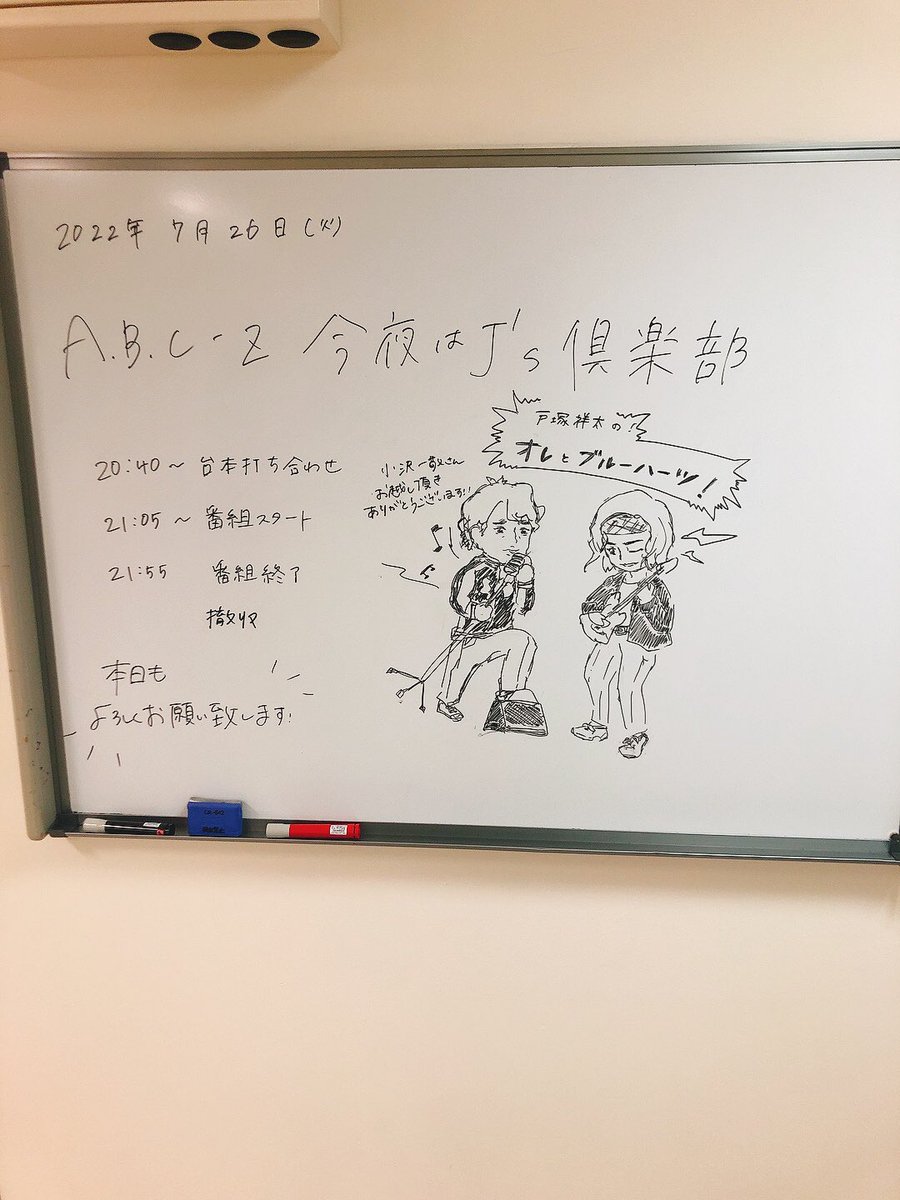 2022年 7月26日(火)
A.B.C-Z 今夜はJ's倶楽部
戸塚祥太の!
オレとブルーハーツ!
小沢一敬さん
お越し頂き
ありがとうございます!!
20:40〜 台本打ち合わせ
21:05〜 番組スタート
21:55 番組終了
撤収
本日も
よろしくお願い致します!